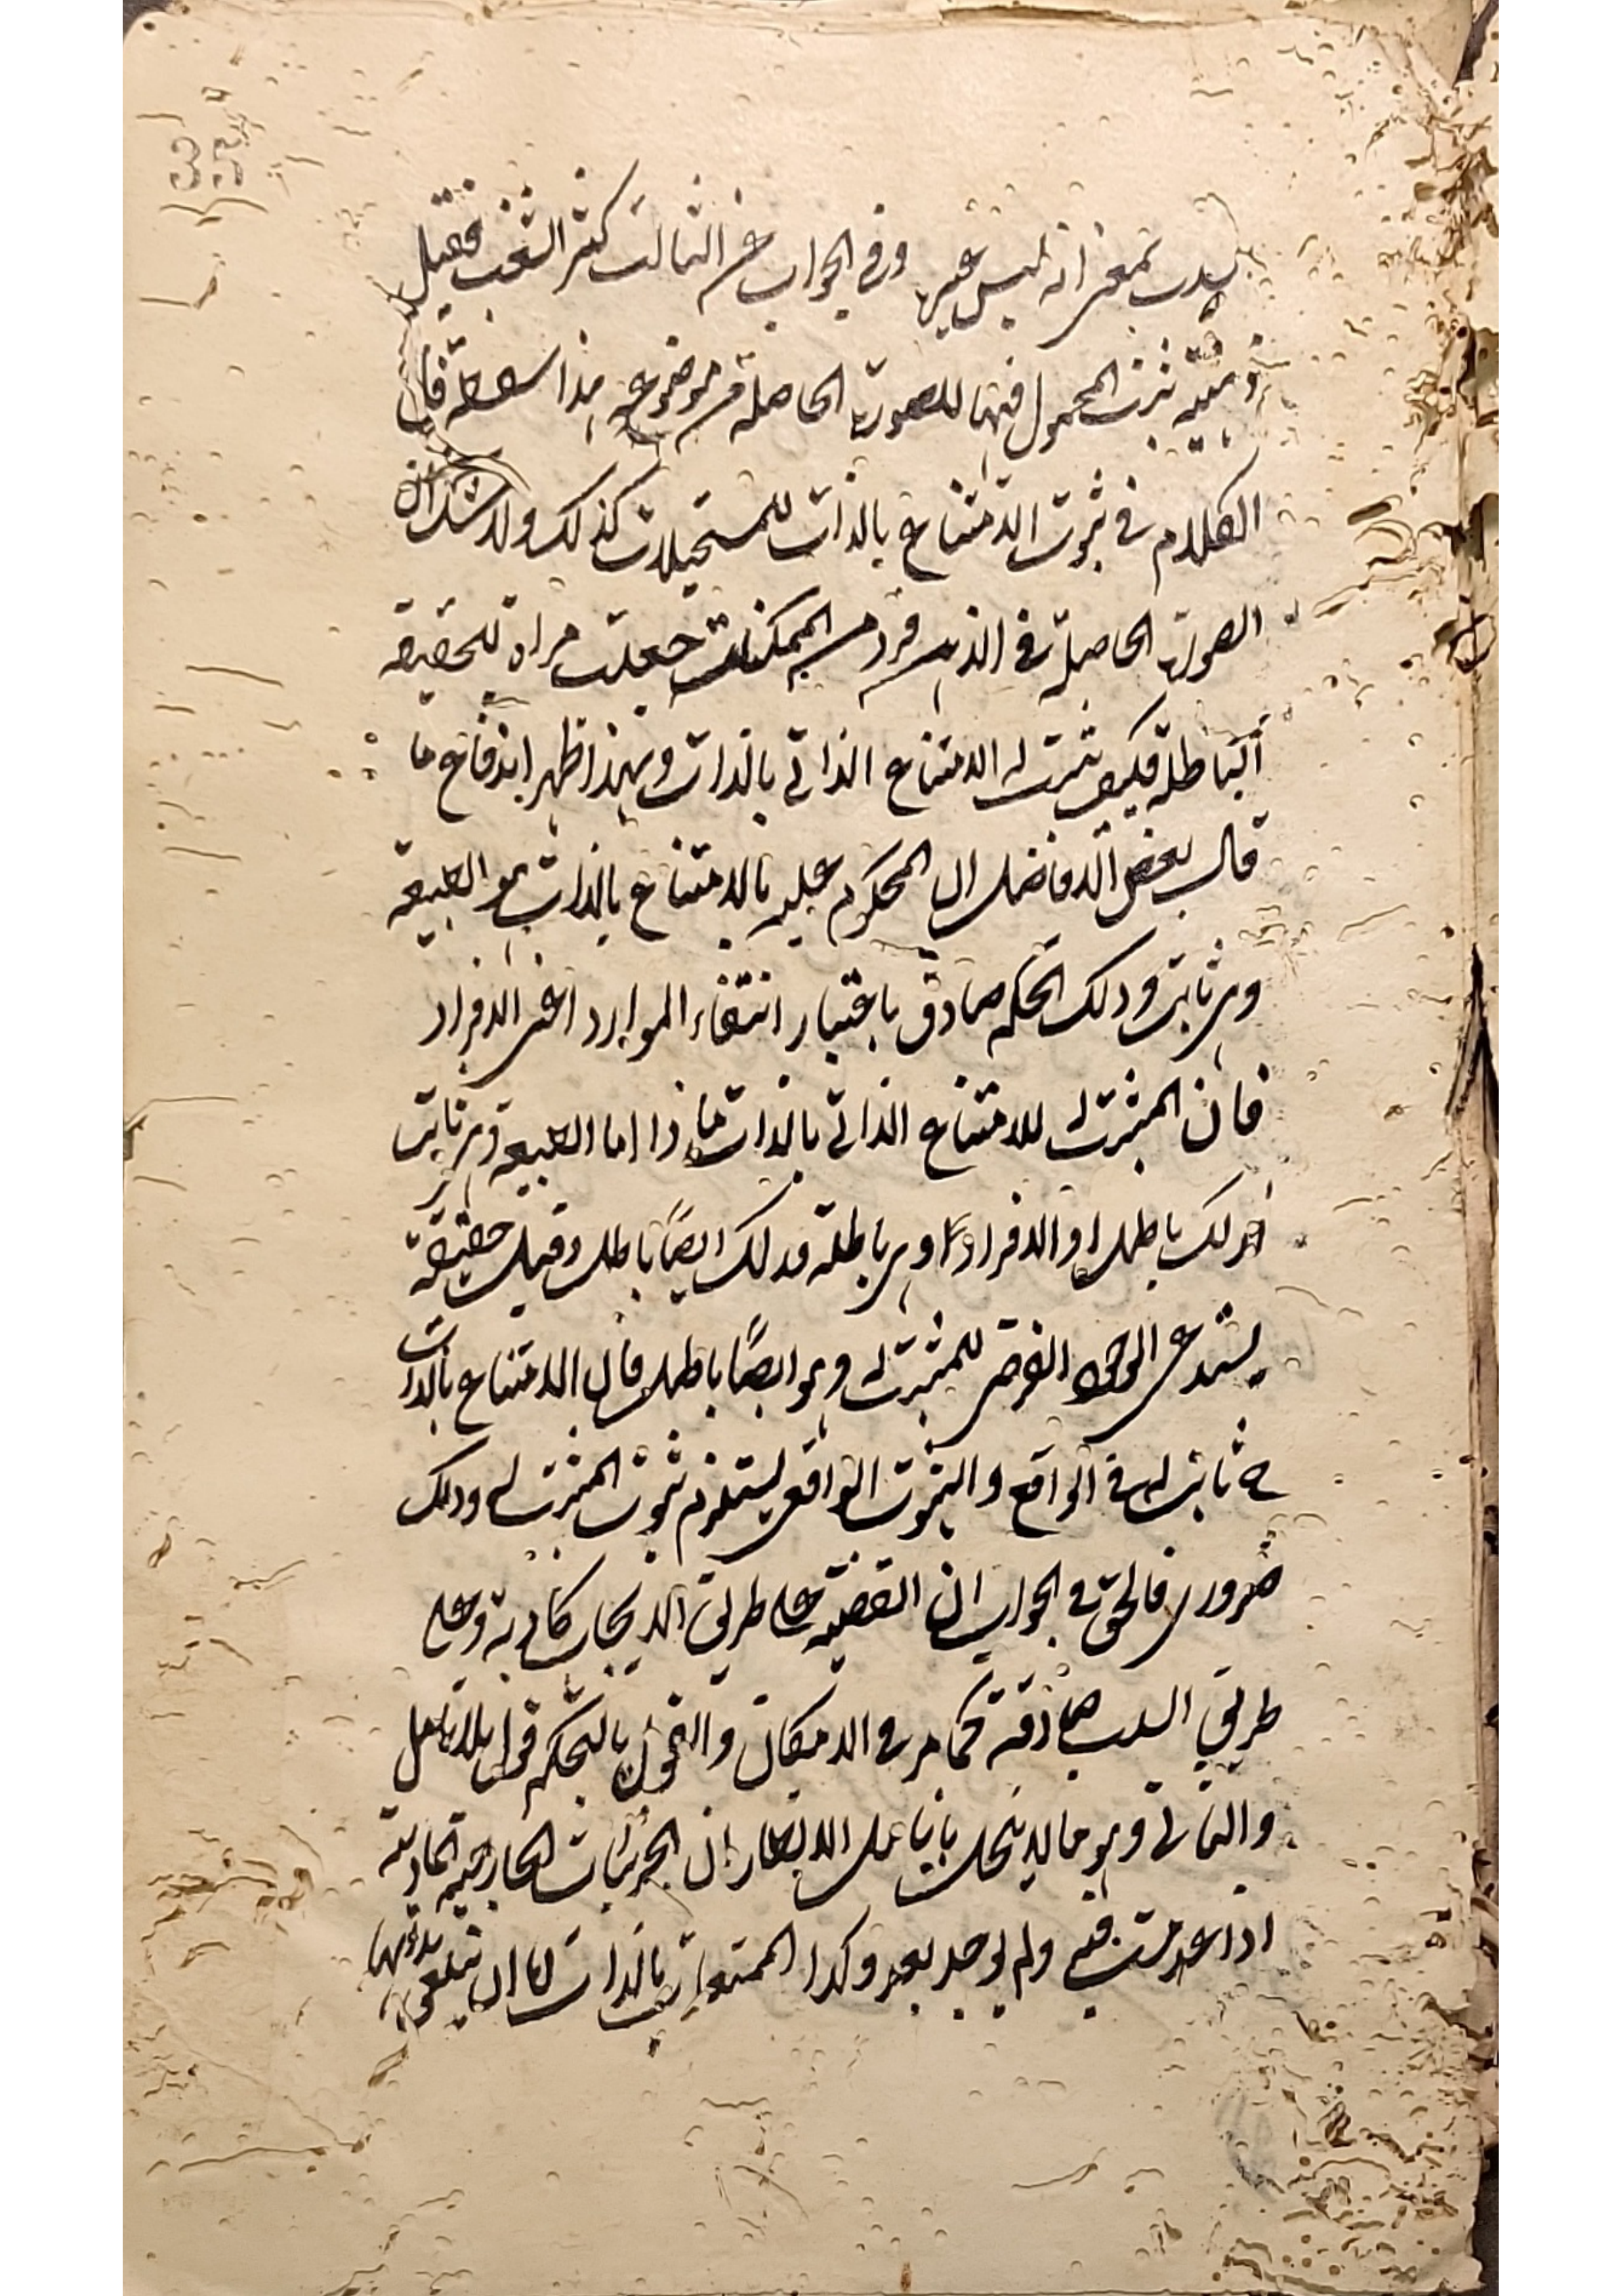 سلب بمعنى انه ليس عينها وفي الجواب عن الثالث كثر الشغب فقيل
ذهنية ثبت المحمول فيها للصورة الحاصلة من موضوعه هذا سفسطة فان
الكلام في ثبوت الامتناع بالذات للمستحيلات كذلك ولا شك ان
الصورة الحاصلة في الذهن فرد من الممكنات جعلت مراة للحقيقة
الباطلة فكيف يثبت له الامتناع الذاتي بالذات وبهذا ظهر اندفاع ما
قال بعض الافاضل ان المحكوم عليه بالامتناع بالذات هو الطبيعة
وهي ثابتة وذلك الحكم صادق باعتبار انتفاء الموارد اعني الافراد
فان المثبت له للامتناع الذاتي بالذات ماذا اما الطبيعة وهي ثابتة
فذلك باطل او الافراد وهي باطلة فذلك ايضًا باطل وقيل حقيقة
يستدعي الوجود الفرضي للمثبت له وهو ايضًا باطل فان الامتناع بالذات
ح ثابت له في الواقع والثبوت الواقعي يستلزم ثبوت المثبت له وذلك
ضروري فالحق في الجواب ان القضية على طريق الايجاب كاذبة وعلى
طريق السلب صادقة كما مر في الامكان والتفوه بالتحكم قول بلا تامل
والثاني وهو ما لا ينحل بانامل الانظار ان الجزئيات الخارجية الحادثة
اذا عدمت فيه ولم يوجد بعد وكذا الممتنعات بالذات لنا ان نتعقل بذاتها